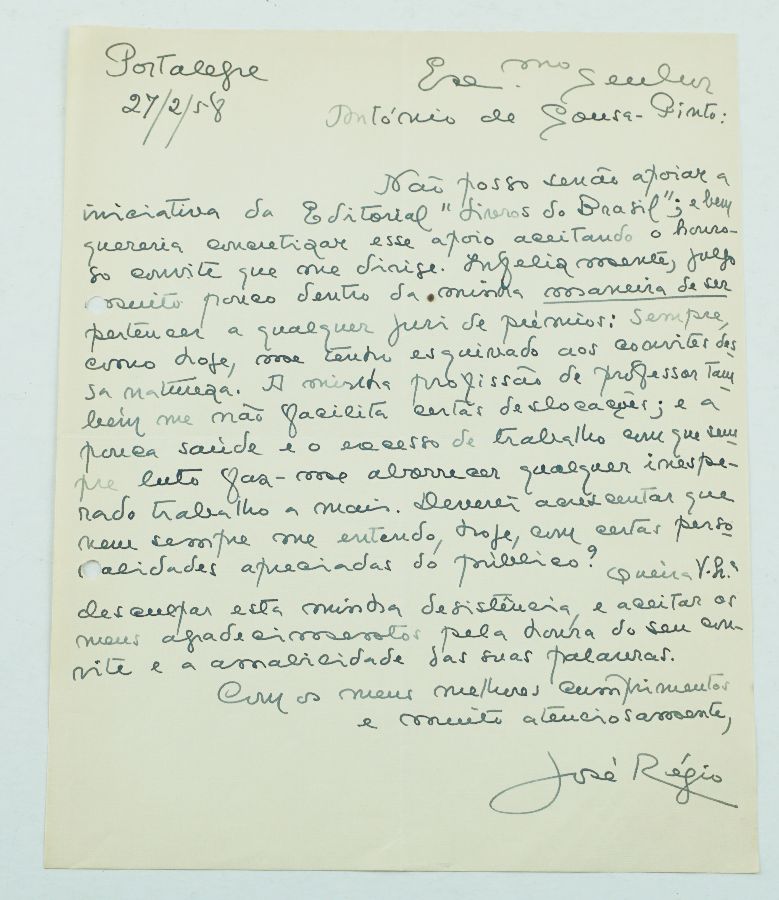 Portalegre
27/2/58
Exc.mo Senhor
António de Sousa-Pinto:
Não posso senão apoiar a
iniciativa da Editorial "Livros do Brasil"; e bem
quereria concretizar esse apoio aceitando o honro-
so convite que me dirige. Infelizmente, julgo
muito pouco dentro da minha maneira de ser
pertencer a qualquer juri de prémios: Sempre,
como hoje, me tenho esquivado aos convites des-
sa natureza. A minha profissão de professor tam-
bém me não facilita certas deslocações; e a
pouca saúde e o excesso de trabalho com que sem-
pre luto faz-me aborrecer qualquer inespe-
rado trabalho a mais. Deverei acrescentar que
nem sempre me entendo, hoje, com certas perso-
nalidades apreciadas do público? Queira V. Ex.ª
desculpar esta minha desistência, e aceitar os
meus agradecimentos pela honra do seu con-
vite e a amabilidade das suas palavras.
Com os meus melhores cumprimentos
e muito atenciosamente,
José Régio